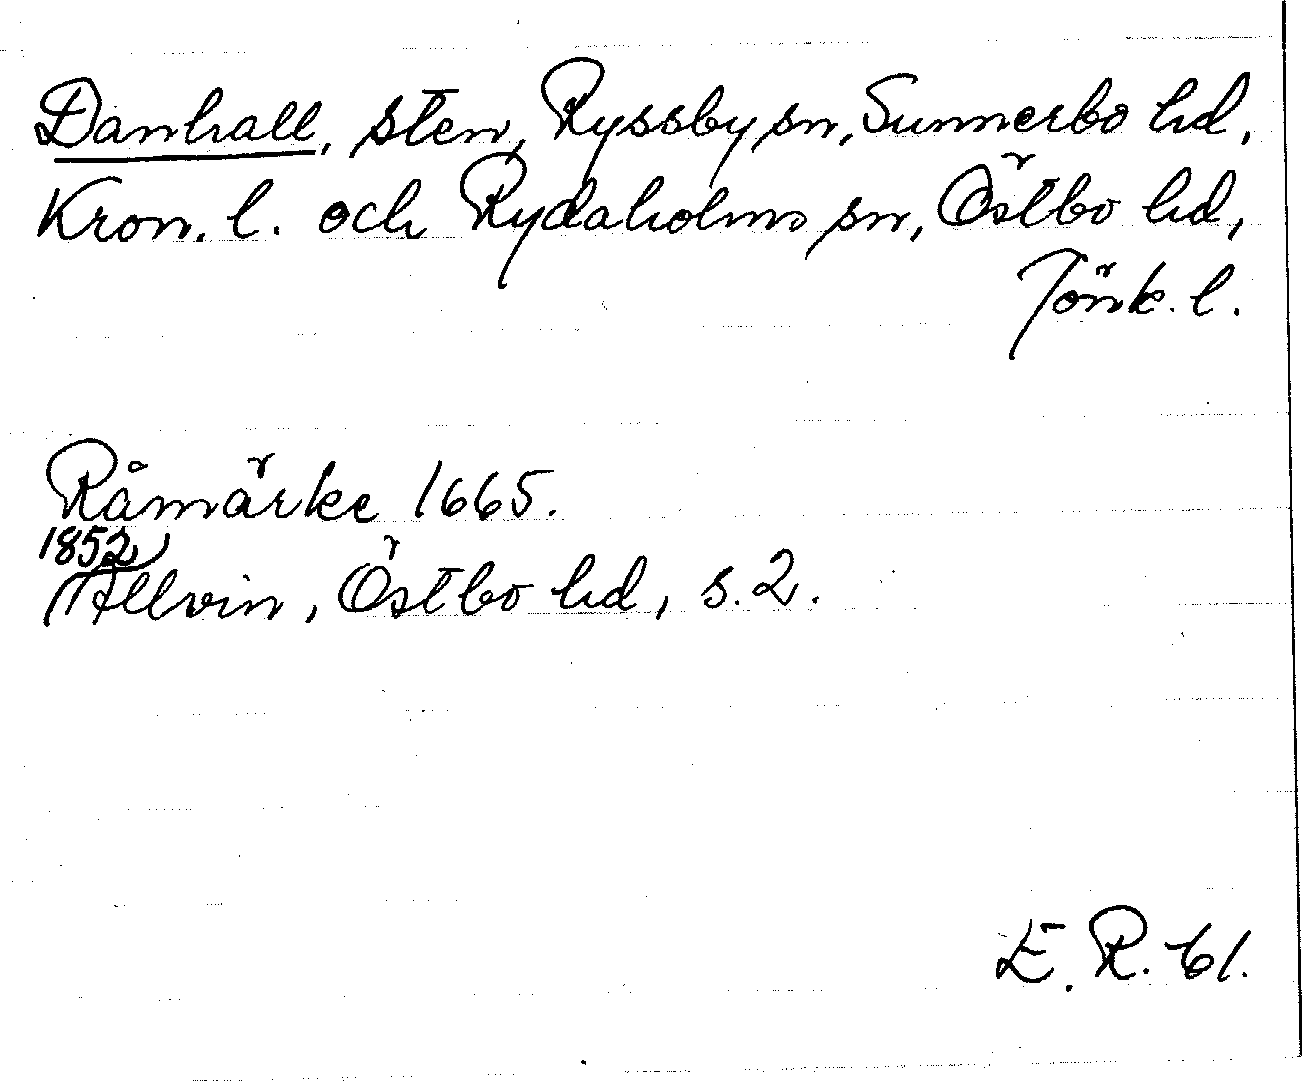 Danhall, sten, Ryssby sn, Sunnerbo hd,
Kron. l. och Rydaholms sn, Östbo hd,
Jönk. l.
Råmärke 1665.
1852
Allvin, Östbo hd, s. 2.
E. R. 61.